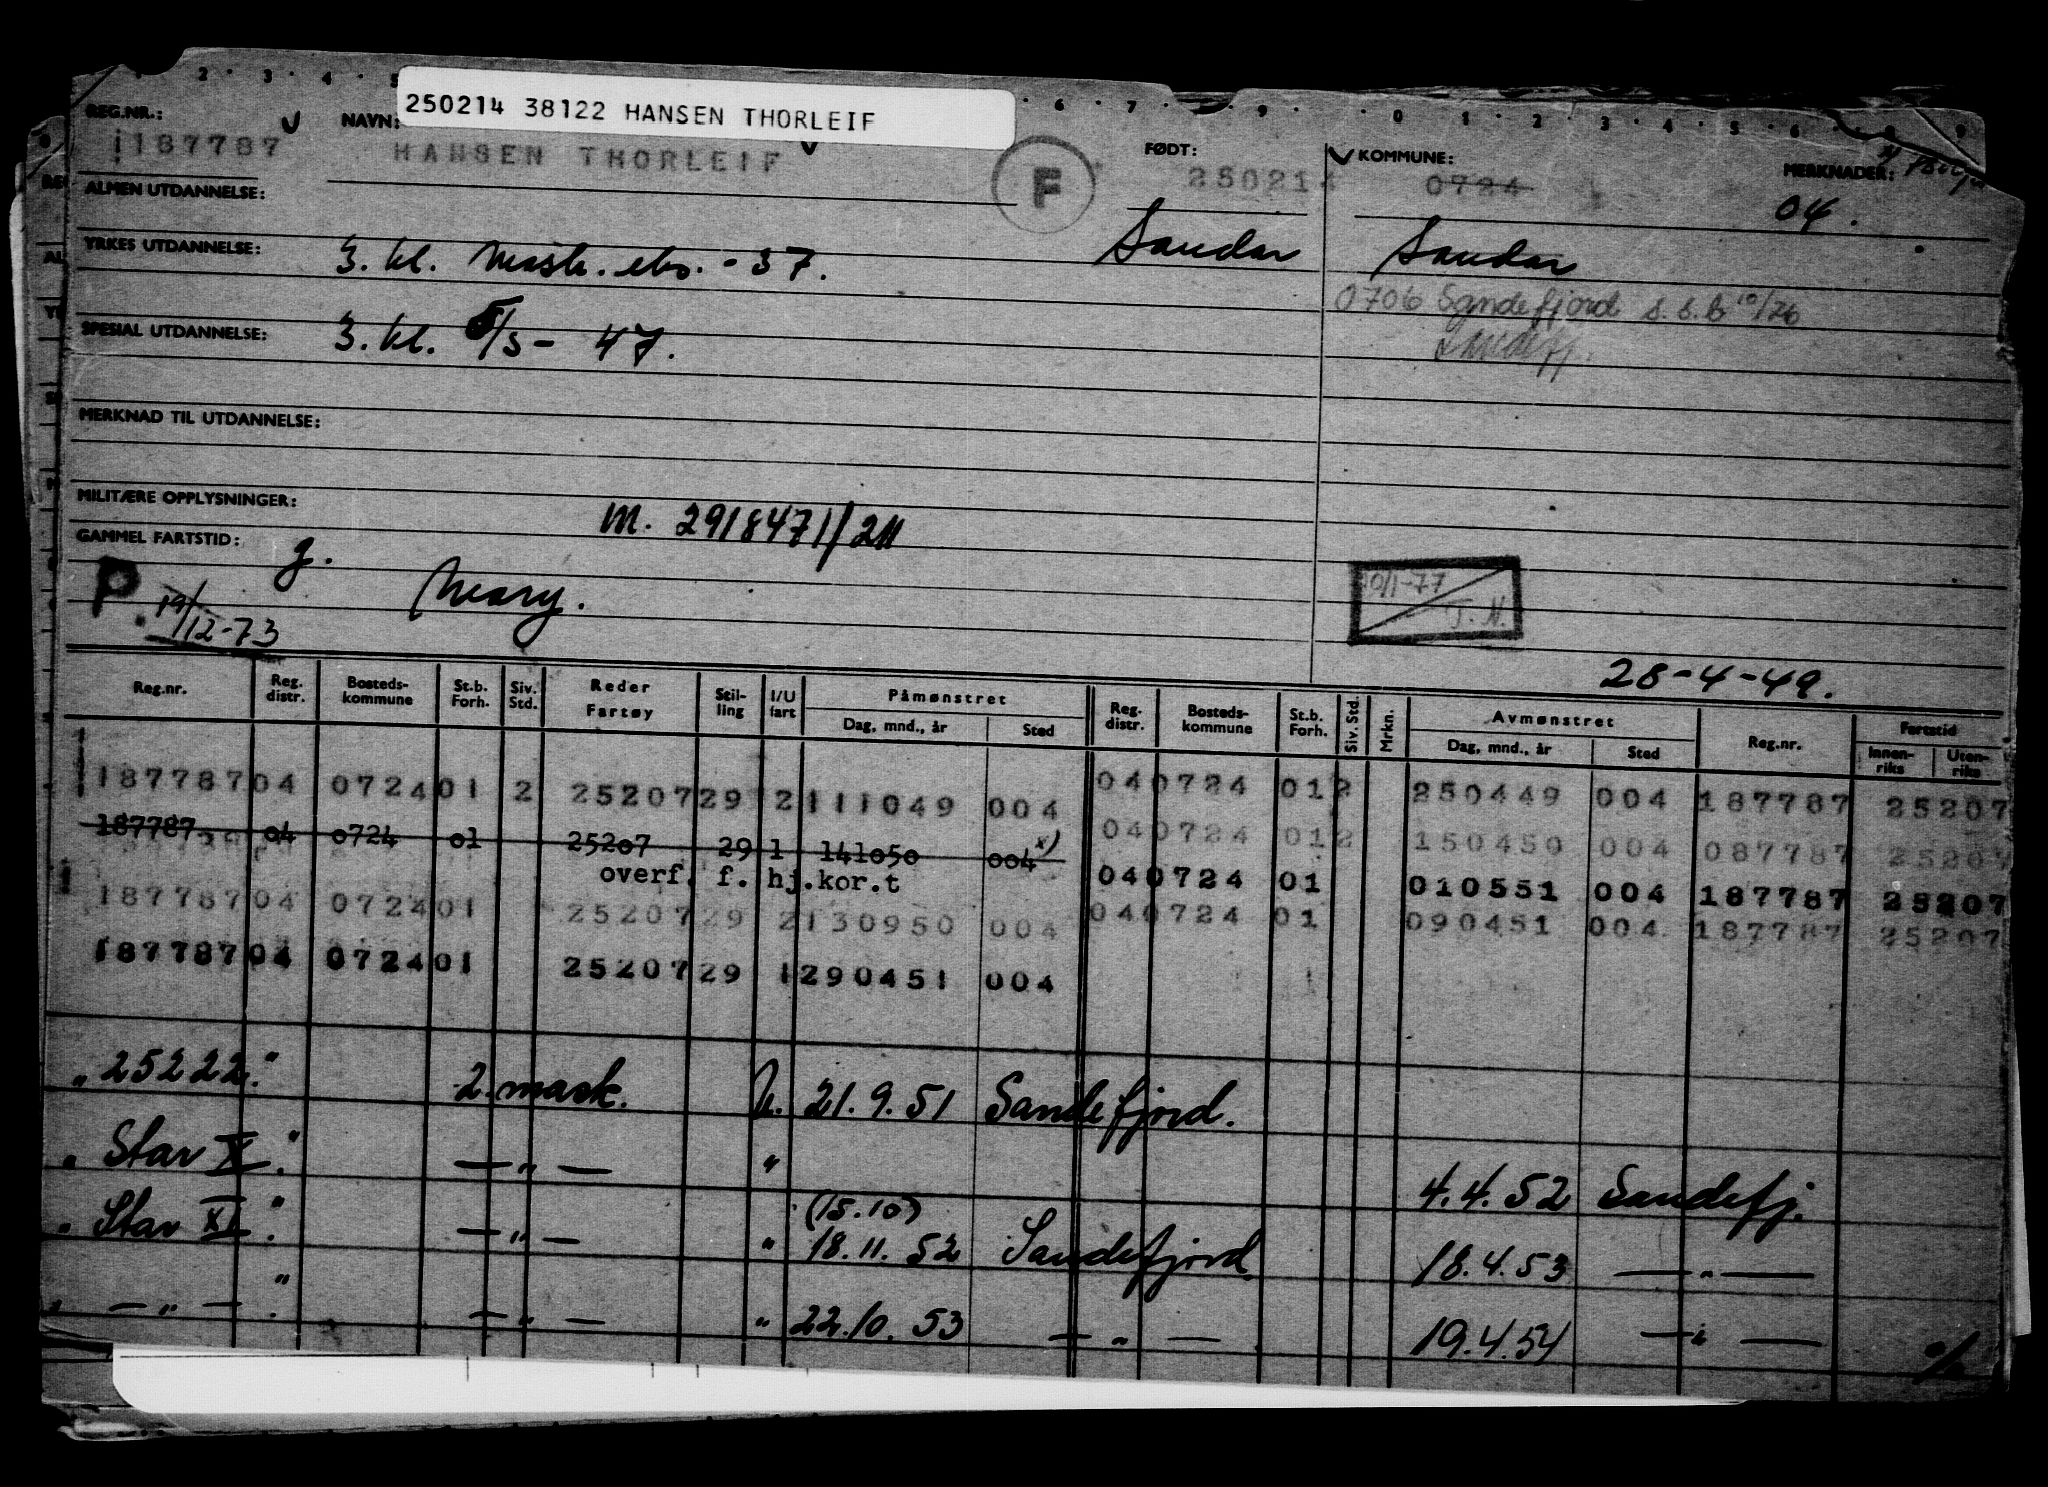 250214 38122 HANSEN THORLEIF
REG.NR.: NAVN: FØDT: KOMMUNE: MERKNADER:
187787 HANSEN THORLEIF F 250214 0724
04.
ALMEN UTDANNELSE:
YRKES UTDANNELSE: 3. kl. mask. eks. - 37. Sandar Sandar
0706 Sandefjord s.s.b 10/76
Sandefj.
SPESIAL UTDANNELSE: 3. kl. 5/3 - 47.
MERKNAD TIL UTDANNELSE:
MILITÆRE OPPLYSNINGER: M. 2918471/2M
GAMMEL FARTSTID: g. Mary.
P. 19/12-73
10/1-77 T.N.
28-4-49.
Reg.nr. Reg. distr. Bosteds-kommune St.b. Forh. Siv. Std. Reder Fartøy Stil-ling I/U fart Påmønstret Dag, mnd., år Sted Reg. distr. Bosteds-kommune St.b. Forh. Siv. Std. Mrkn. Avmønstret Dag, mnd., år Sted Reg.nr. Fartstid Innen-riks Uten-riks
187787 04 0724 01 2 25207 29 2 111049 004 04 0724 01 2 250449 004 187787 25207
187787 04 0724 01 25207 29 1 141050 004 x) 04 0724 01 2 150450 004 087787 25207
overf. f. hj.kor.t 04 0724 01 010551 004 187787 25207
187787 04 0724 01 25207 29 2 130950 004 04 0724 01 090451 004 187787 25207
187787 04 0724 01 25207 29 1 290451 004
"25222." 2 mask. U. 21.9.51 Sandefjord.
"Star X." — " — " 4.4.52 Sandefj.
(15.10)
"Star XI." — " — " 18.11.52 Sandefjord 18.4.53 — " —
" — " — ." — " — " 22.10.53 — " — 19.4.54 — " —